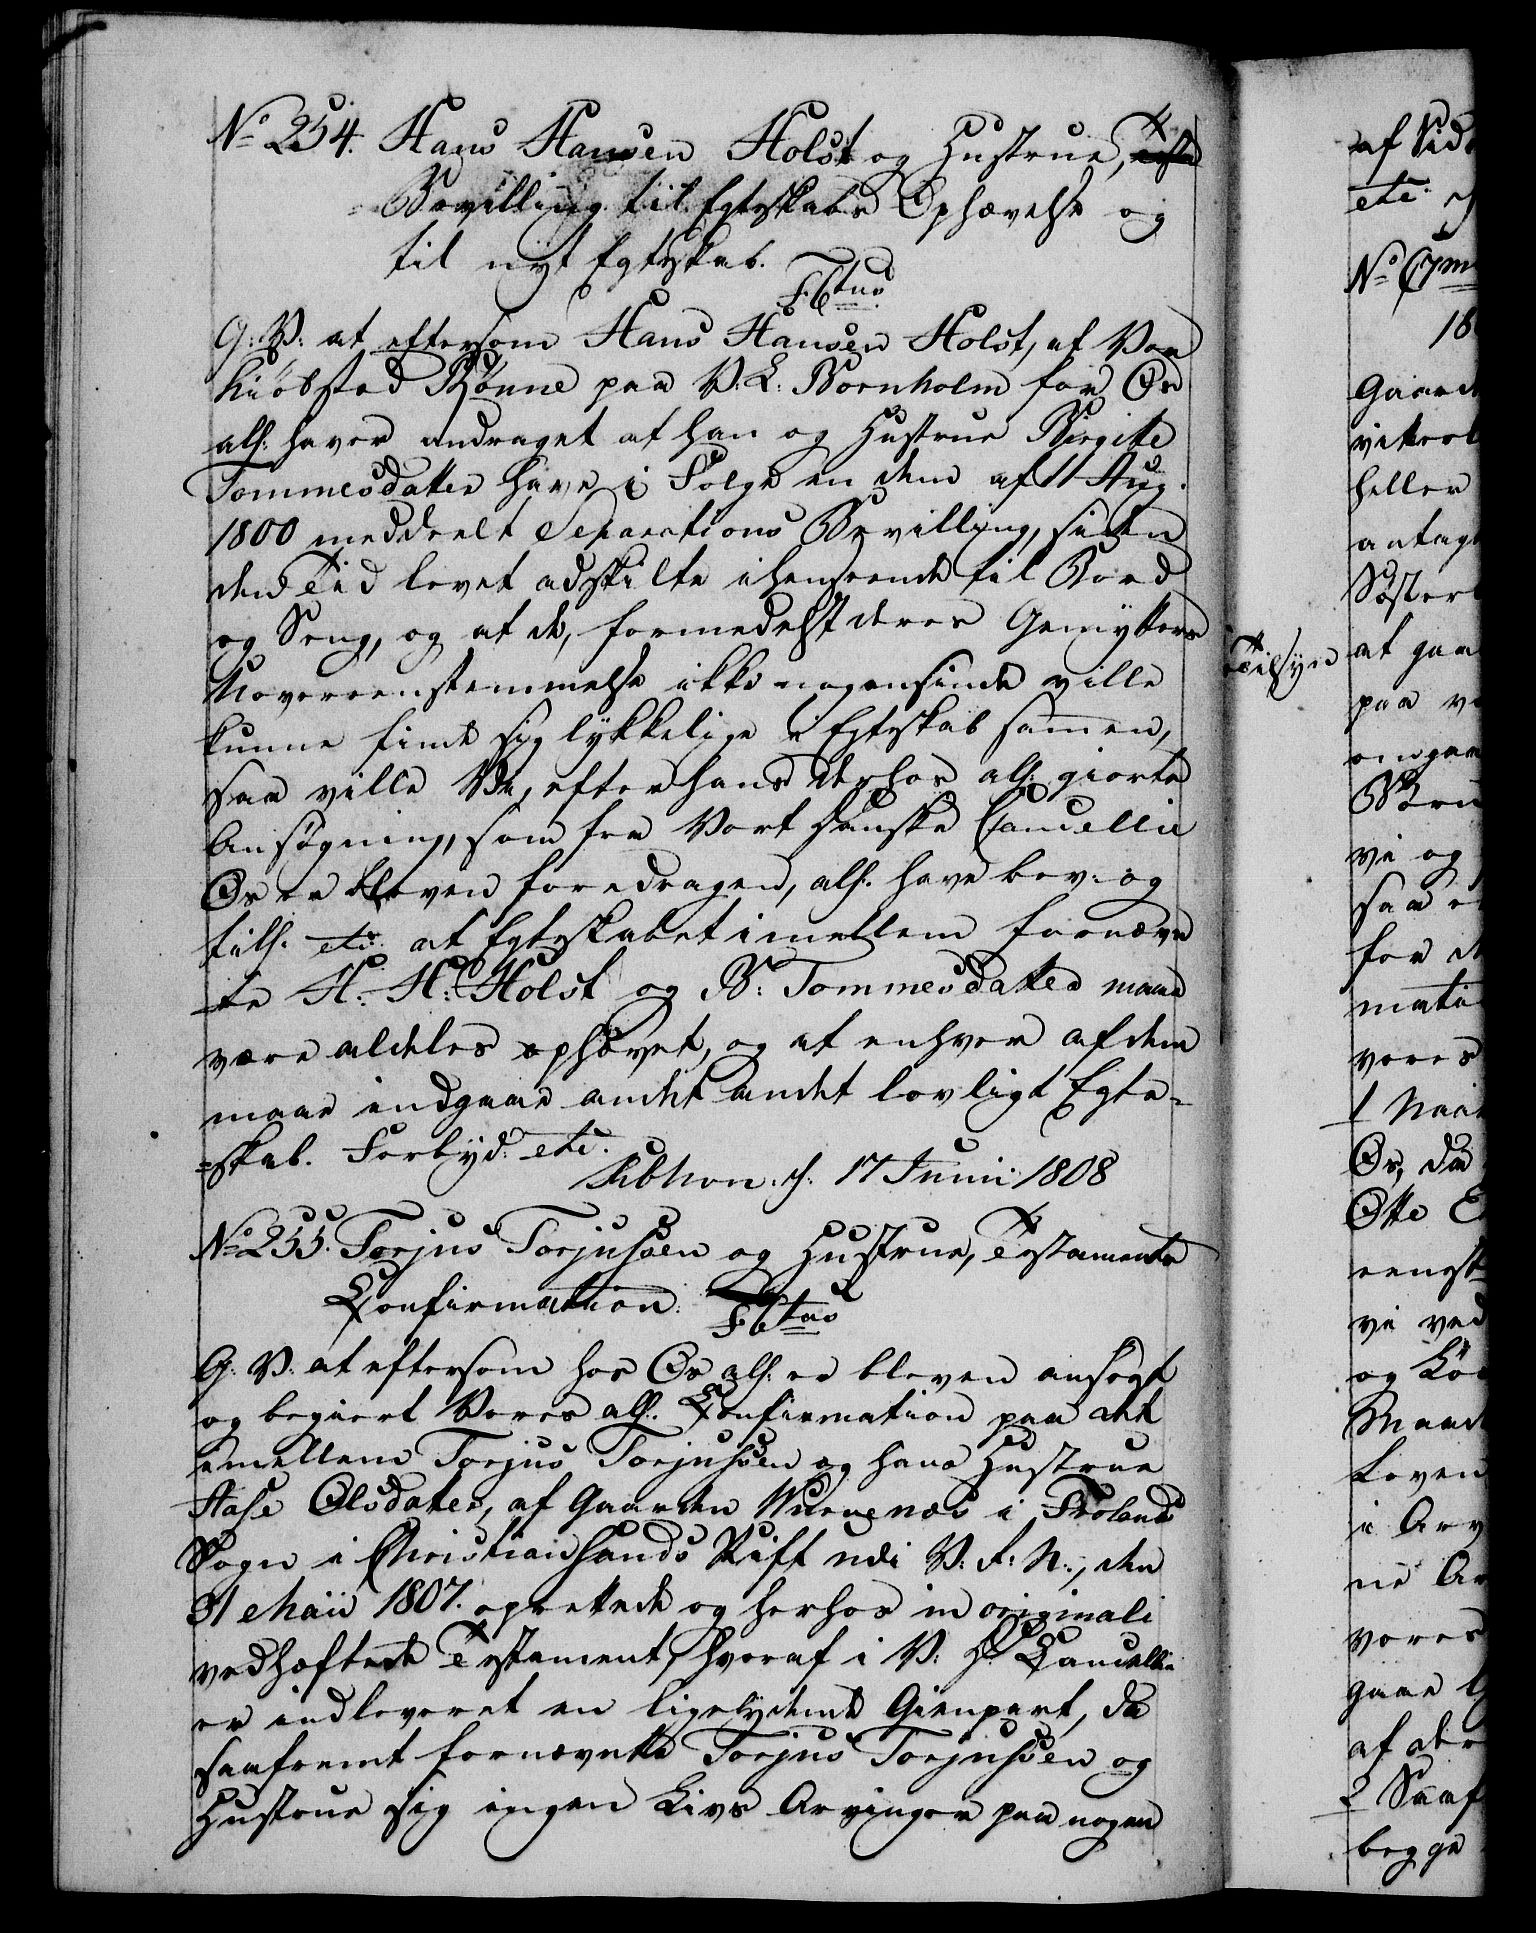 No 254. Hans Hansen Holst og Hustrue,
Bevilling til Egteskabs Ophævelse og
til nyt Egteskab.
F: 6tus
G: V: at eftersom Hans Hansen Holst, af Vor
Kiöbsted Rønne paa V. L. Bornholm for Os
alf: haver andraget at han og Hustrue Birgitte
Tommesdatter have i Følge en dem af 11 Aug.
1800 meddeelt Separations Bevilling, siden
den Tid levet adskilte i henseende til Bord
og Seng, og at de, formedelst deres Gemytters
Uovereenstemmelse ikke nogensinde ville
kunne finde sig lykkelige i Egteskab samen,
saa ville Vi, efter hans derhos alf: giorte
Ansøgning, som fra Vort danske Cancellie
Os er bleven foredragen, alf: have bev: og
till: etc: at Egteskabet imellem fornævn
te H: H: Holst og B: Tommesdatter maae
være aldeles ophævet, og at enhver af dem
maae indgaae andet andet lovligt Egte=
=skab. Forbyd: etc.
Kibhvn. d. 17 Junii 1808
No 255. Torjus Torjussen og Hustrue, Testaments
Confirmation. F: 6tus
G. V. at eftersom hos Os alf: er bleven ansøgt
og begiert Vores alf: Confirmation paa det
imellem Torjus Torjussen og hans Hustrue
Aase Olsdatter, af Gaarden i Frolands
Sogn i Christiansands Stift udi V: R: N:, den
31 Maii 1807. oprettede og herhos in originali
vedhæftede Testament, hvoraf i V: D: Cancellie
er indleveret en ligelydende Gienpart, da
saafremt fornævnte Torjus Torjussen og
Hustrue sig ingen Livs Arvinger paa nogen
Tilsyn
af Sid
etc
No
18
Gaard
heller
antag
at gaa
paa
vi og
saa
for
vores
Os, da
Otte
vi ved
og
Loven
i Arv
ne Ar
vores
gaae
af der
2 Saaf
begge